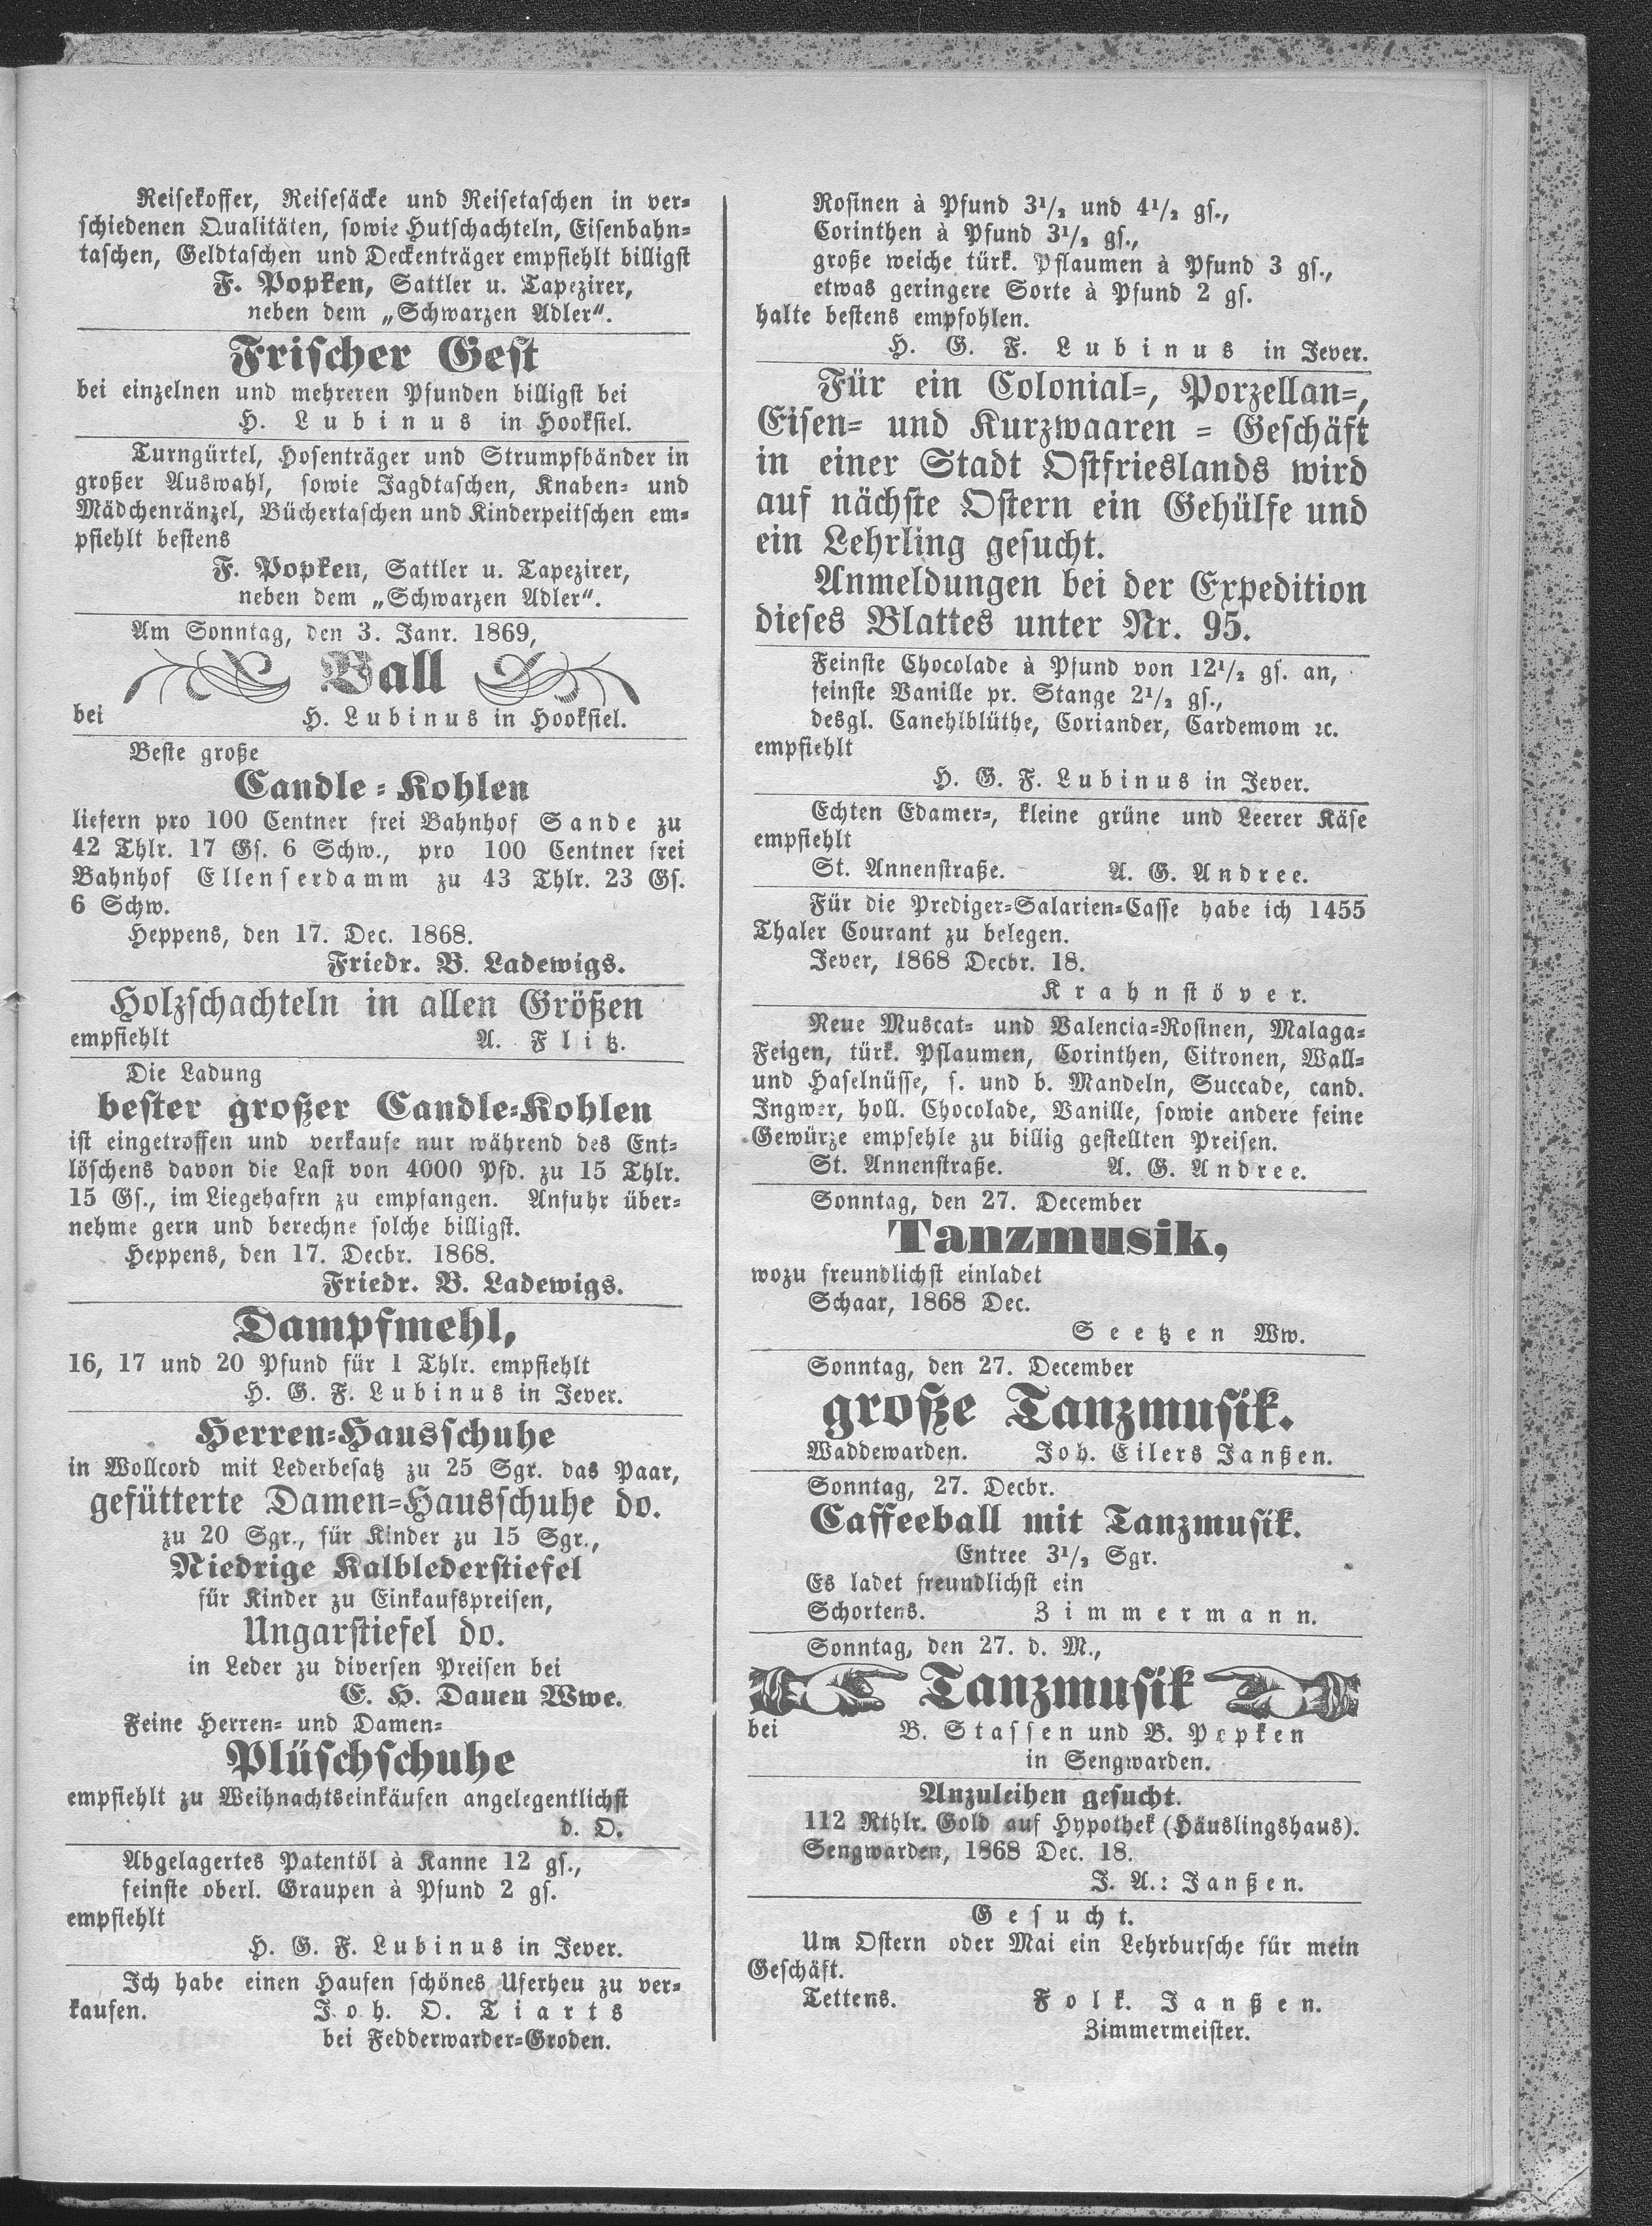 Reisekoffer, Reisesäcke und Reisetaschen in ver-
schiedenen Qualitäten, sowie Hutschachteln, Eisenbahn-
taschen, Geldtaschen und Deckenträger empfiehlt billigst
F. Popken, Sattler u. Tapezirer,
neben dem „Schwarzen Adler“.
Frischer Gest
bei einzelnen und mehreren Pfunden billigst bei
H. Lubinus in Hooksiel.
Turngürtel, Hosenträger und Strumpfbänder in
großer Auswahl, sowie Jagdtaschen, Knaben- und
Mädchenränzel, Büchertaschen und Kinderpeitschen em-
pfiehlt bestens
F. Popken, Sattler u. Tapezirer,
neben dem „Schwarzen Adler“.
Am Sonntag, den 3. Janr. 1869,
Ball
bei H. Lubinus in Hooksiel.
Beste große
Candle-Kohlen
liefern pro 100 Centner frei Bahnhof Sande zu
42 Thlr. 17 Gs. 6 Schw., pro 100 Centner frei
Bahnhof Ellenserdamm zu 43 Thlr. 23 Gs.
6 Schw.
Heppens, den 17. Dec. 1868.
Friedr. B. Ladewigs.
Holzschachteln in allen Größen
empfiehlt A. Flitz.
Die Ladung
bester großer Candle-Kohlen
ist eingetroffen und verkaufe nur während des Ent-
löschens davon die Last von 4000 Pfd. zu 15 Thlr.
15 Gs., im Liegehafrn zu empfangen. Anfuhr über-
nehme gern und berechne solche billigst.
Heppens, den 17. Decbr. 1868.
Friedr. B. Ladewigs.
Dampfmehl,
16, 17 und 20 Pfund für 1 Thlr. empfiehlt
H. G. F. Lubinus in Jever.
Herren-Hausschuhe
in Wollcord mit Lederbesatz zu 25 Sgr. das Paar,
gefütterte Damen-Hausschuhe do.
zu 20 Sgr., für Kinder zu 15 Sgr.,
Niedrige Kalblederstiefel
für Kinder zu Einkaufspreisen,
Ungarstiefel do.
in Leder zu diversen Preisen bei
E. H. Dauen Wwe.
Feine Herren- und Damen-
Plüschschuhe
empfiehlt zu Weihnachtseinkäufen angelegentlichst
d. O.
Abgelagertes Patentöl à Kanne 12 gs.,
feinste oberl. Graupen à Pfund 2 gs.
empfiehlt
H. G. F. Lubinus in Jever.
Ich habe einen Haufen schönes Uferheu zu ver-
kaufen. Joh. O. Tiarts
bei Fedderwarder-Groden.
Rosinen à Pfund 3 1/2 und 4 1/2 gs.,
Corinthen à Pfund 3 1/2 gs.,
große weiche türk. Pflaumen à Pfund 3 gs.,
etwas geringere Sorte à Pfund 2 gs.
halte bestens empfohlen.
H. G. F. Lubinus in Jever.
Für ein Colonial-, Porzellan-,
Eisen- und Kurzwaaren-Geschäft
in einer Stadt Ostfrieslands wird
auf nächste Ostern ein Gehülfe und
ein Lehrling gesucht.
Anmeldungen bei der Expedition
dieses Blattes unter Nr. 95.
Feinste Chocolade à Pfund von 12 1/2 gs. an,
feinste Vanille pr. Stange 2 1/2 gs.,
desgl. Canehlblüthe, Coriander, Cardemom ꝛc.
empfiehlt
H. G. F. Lubinus in Jever.
Echten Edamer-, kleine grüne und Leerer Käse
empfiehlt
St. Annenstraße. A. G. Andree.
Für die Prediger-Salarien-Casse habe ich 1455
Thaler Courant zu belegen.
Jever, 1868 Decbr. 18.
Krahnstöver.
Neue Muscat- und Valencia-Rosinen, Malaga-
Feigen, türk. Pflaumen, Corinthen, Citronen, Wall-
und Haselnüsse, s. und b. Mandeln, Succade, cand.
Ingwer, holl. Chocolade, Vanille, sowie andere feine
Gewürze empfehle zu billig gestellten Preisen.
St. Annenstraße. A. G. Andree.
Sonntag, den 27. December
Tanzmusik,
wozu freundlichst einladet
Schaar, 1868 Dec.
Seetzen Ww.
Sonntag, den 27. December
große Tanzmusik.
Waddewarden. Joh. Eilers Janßen.
Sonntag, 27. Decbr.
Caffeeball mit Tanzmusik.
Entree 3 1/2 Sgr.
Es ladet freundlichst ein
Schortens. Zimmermann.
Sonntag, den 27. d. M.,
Tanzmusik
bei B. Stassen und B. Popken
in Sengwarden.
Anzuleihen gesucht.
112 Rthlr. Gold auf Hypothek (Häuslingshaus).
Sengwarden, 1868 Dec. 18.
J. A.: Janßen.
Gesucht.
Um Ostern oder Mai ein Lehrbursche für mein
Geschäft.
Tettens. Folk. Janßen.
Zimmermeister.